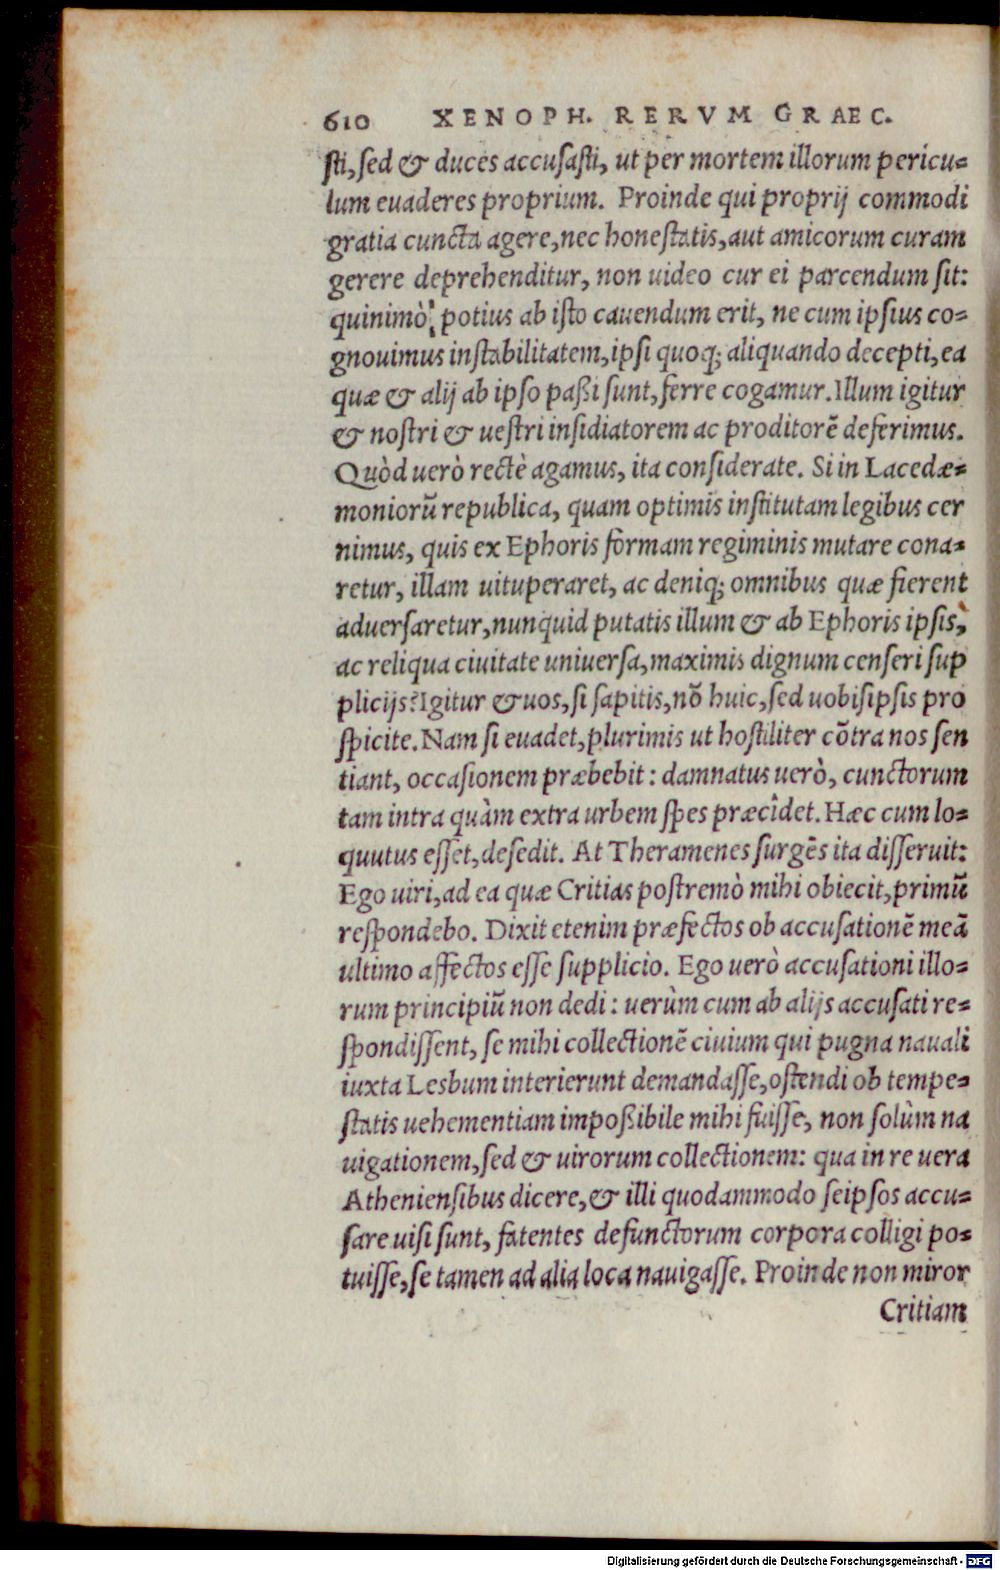 610 XENOPH. RERVM GRAEC.
sti, sed & duces accusasti, ut per mortem illorum pericu=
lum euaderes proprium. Proinde qui proprij commodi
gratia cuncta agere, nec honestatis, aut amicorum curam
gerere deprehenditur, non uideo cur ei parcendum sit:
quinimò potius ab isto cauendum erit, ne cum ipsius co=
gnouimus instabilitatem, ipsi quoq; aliquando decepti, ea
quæ & alij ab ipso paßi sunt, ferre cogamur. Illum igitur
& nostri & uestri insidiatorem ac proditorē deferimus.
Quòd uerò rectè agamus, ita considerate. Si in Lacedæ=
moniorū republica, quam optimis institutam legibus cer
nimus, quis ex Ephoris formam regiminis mutare cona=
retur, illam uituperaret, ac deniq; omnibus quæ fierent
aduersaretur, nunquid putatis illum & ab Ephoris ipsis,
ac reliqua ciuitate uniuersa, maximis dignum censeri sup
plicijs? Igitur & uos, si sapitis, nō huic, sed uobisipsis pro
spicite. Nam si euadet, plurimis ut hostiliter cōtra nos sen
tiant, occasionem præbebit: damnatus uerò, cunctorum
tam intra quàm extra urbem spes præcîdet. Hæc cum lo=
quutus esset, desedit. At Theramenes surgēs ita disseruit:
Ego uiri, ad ea quæ Critias postremò mihi obiecit, primū
respondebo. Dixit etenim præfectos ob accusationē meā
ultimo affectos esse supplicio. Ego uerò accusationi illo=
rum principiū non dedi: uerùm cum ab alijs accusati re=
spondissent, se mihi collectionē ciuium qui pugna nauali
iuxta Lesbum interierunt demandasse, ostendi ob tempe=
statis uehementiam impoßibile mihi fuisse, non solùm na
uigationem, sed & uirorum collectionem: qua in re uera
Atheniensibus dicere, & illi quodammodo seipsos accu=
sare uisi sunt, fatentes defunctorum corpora colligi po=
tuisse, se tamen ad alia loca nauigasse. Proinde non miror
Critiam
Digitalisierung gefördert durch die Deutsche Forschungsgemeinschaft - DFG